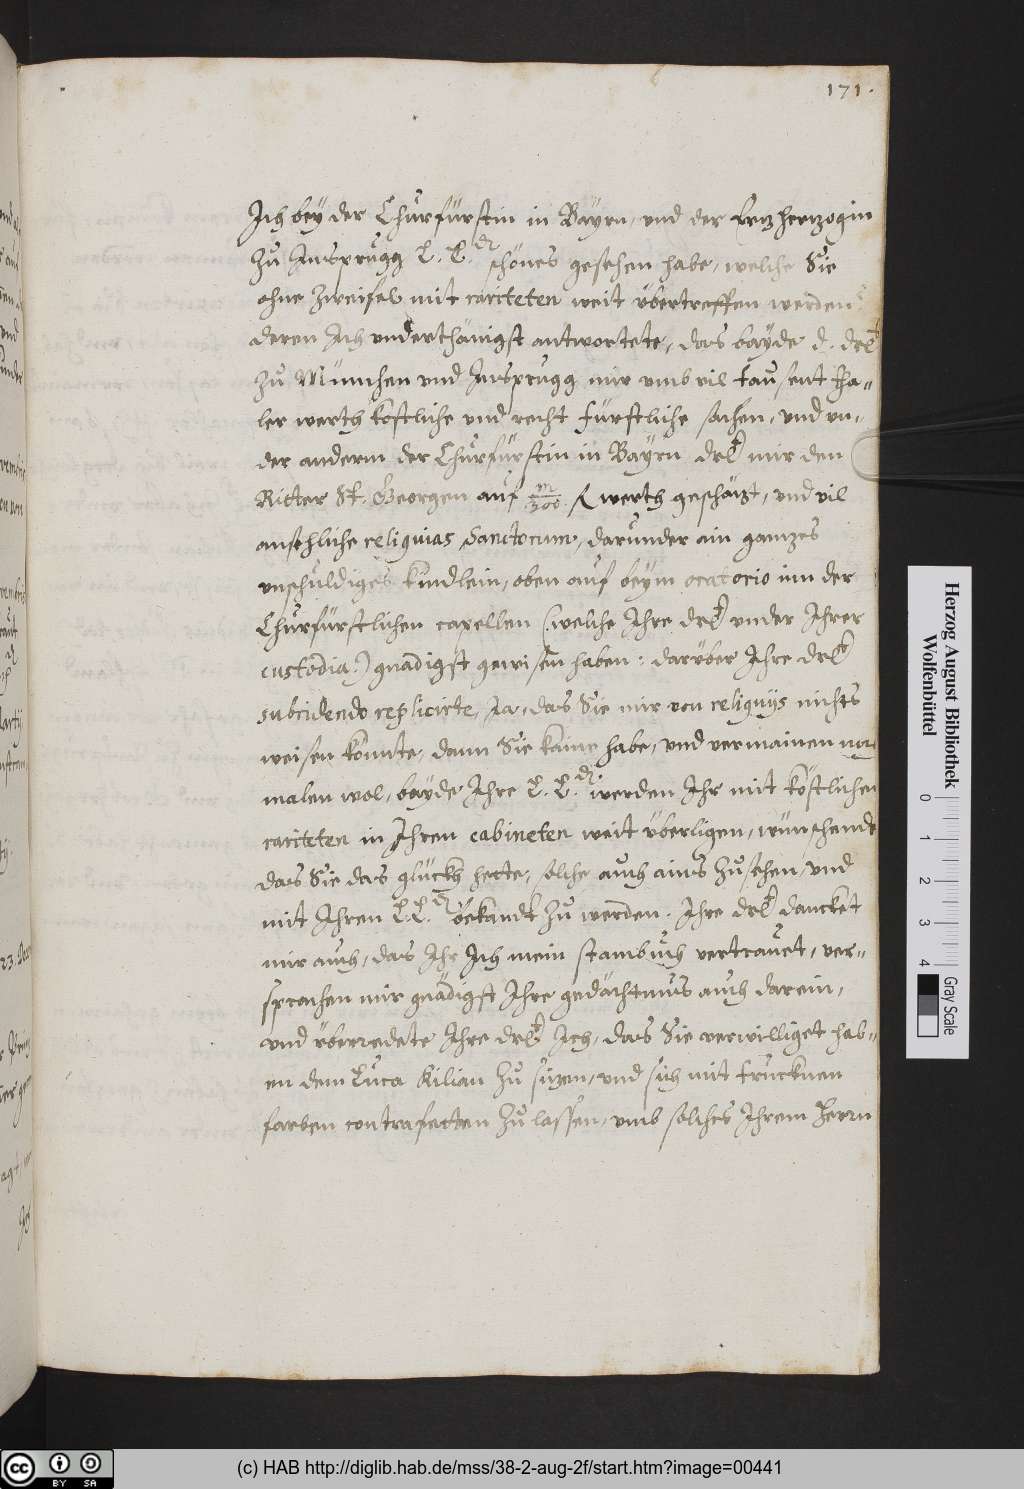 171.
Ich bey der Churfürstin in Bayrn, und der Ertzhertzogin
zu Insprugg L. L. dt schönes gesehen habe, welche Sie
ohne zweifel mit rariteten weit übertreffen werden
deren Ich underthänigst antwortete, das bayde d. drlt
zu München und Insprugg mir umb vil tausent tha-
ler werth kostliche und recht fürstliche sachen, und un-
der anderm der Churfürstin in Bayrn drlt mir den
Ritter St. Georgen auf m/300 fl werth geschäzt, und vil
ansehliche reliquias Sanctorum, darunder ain ganzes
unschuldiges kindlein, oben auf beym oratorio inn der
Churfürstlichen capellen (welche Ihre drlt under Ihrer
custodia:) gnädigst gewisen haben: darüber Ihre drlt
subridendo replicirte, Ja, das Sie mir von reliquijs nichts
weisen könnte, dann Sie kaine habe, und vermainen
malen wol, bayde Ihre L. L. dt werden Ihr mit köstlichen
rariteten in Ihren cabineten weit überligen, wünschende
das Sie das glückh hette, solche auch ains zu sehen, und
mit Ihren L. L. dt bekandt zu werden. Ihre drlt dancket
mir auch, das Ihr Ich mein stambuch vertrauet, ver-
sprachen mir gnädigst Ihre gedächtnus auch darein,
und überredete Ihre drlt Ich, das Sie verwilliget hab-
en dem Luca Kilian zu sizen, und sich mit trucknen
farben contrafetten zu lassen, umb solches Ihrem Herrn
Herzog August Bibliothek
Wolfenbüttel
0 1 2 3 4
Gray Scale
cc BY SA
(c) HAB http://diglib.hab.de/mss/38-2-aug-2f/start.htm?image=00441